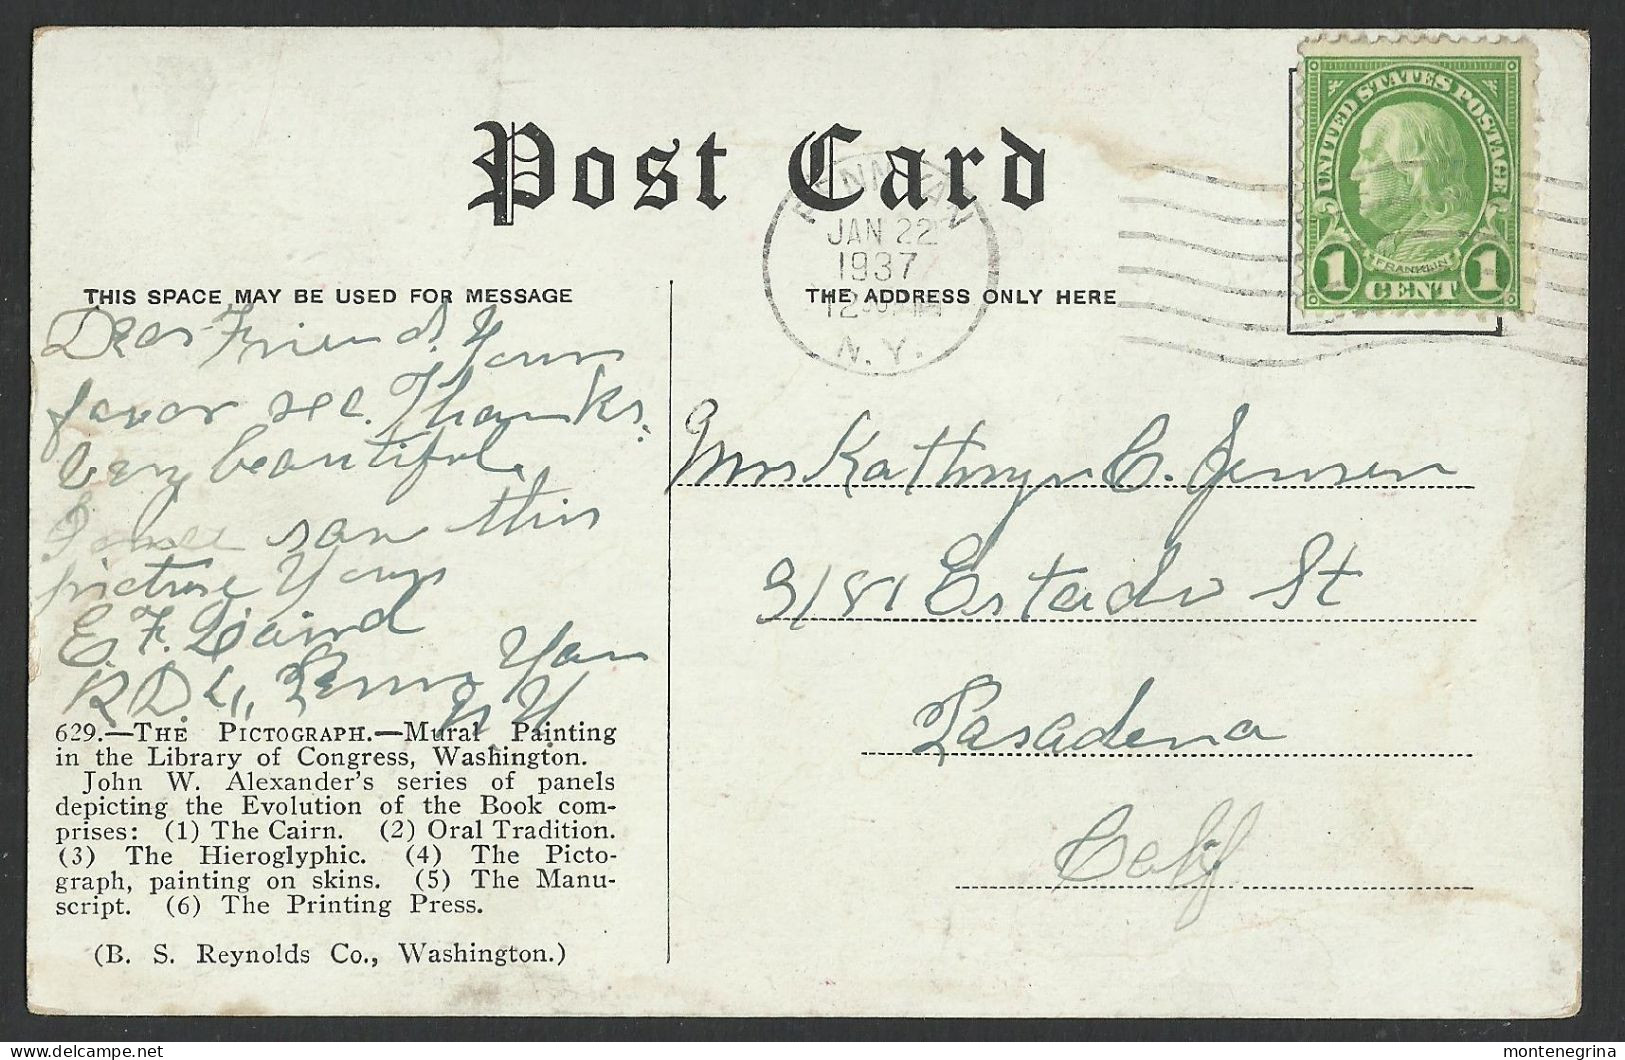 Post Card
UNITED STATES POSTAGE
FRANKLIN
1 CENT 1
PENN YAN
JAN 22
1937
12
N.Y.
THIS SPACE MAY BE USED FOR MESSAGE
THE ADDRESS ONLY HERE
Dear Friend. Your
favor rec. Thanks.
Very beautiful.
saw this
picture Yours
E. F. Laird
R D Penn Yan
N Y
Mrs Kathryn C. Jensen
3181 Estado St
Pasadena
Calif
629.—THE PICTOGRAPH.—Mural Painting
in the Library of Congress, Washington.
John W. Alexander's series of panels
depicting the Evolution of the Book com-
prises: (1) The Cairn. (2) Oral Tradition.
(3) The Hieroglyphic. (4) The Picto-
graph, painting on skins. (5) The Manu-
script. (6) The Printing Press.
(B. S. Reynolds Co., Washington.)
delcampe.net
montenegrina